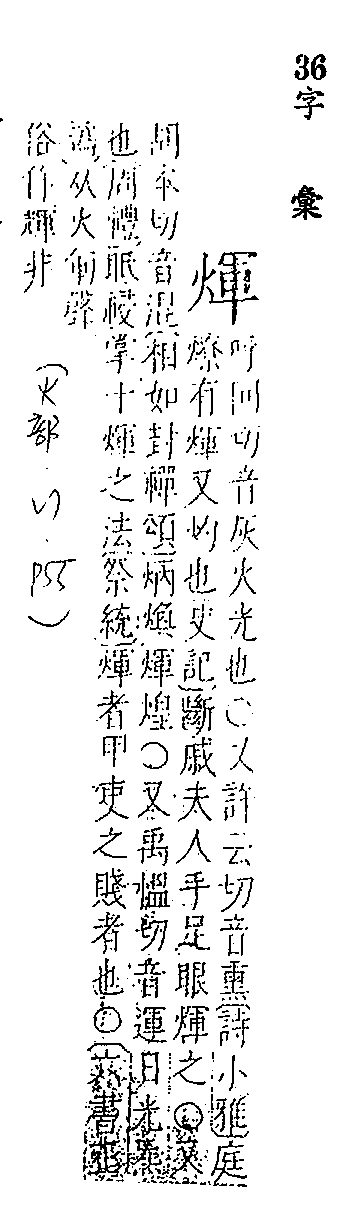 36
字彙
煇
呼回切音灰火光也○又許云切音熏詩小雅庭
燎有煇又灼也史記斷戚夫人手足眼煇之○又
胡本切音混相如封禪頌炳煥煇煌○又禹慍切音運日光氣
也周禮眂祲掌十煇之法祭統煇者甲吏之賤者也○六書正
譌从火聲
俗作輝非
(火部.P55)